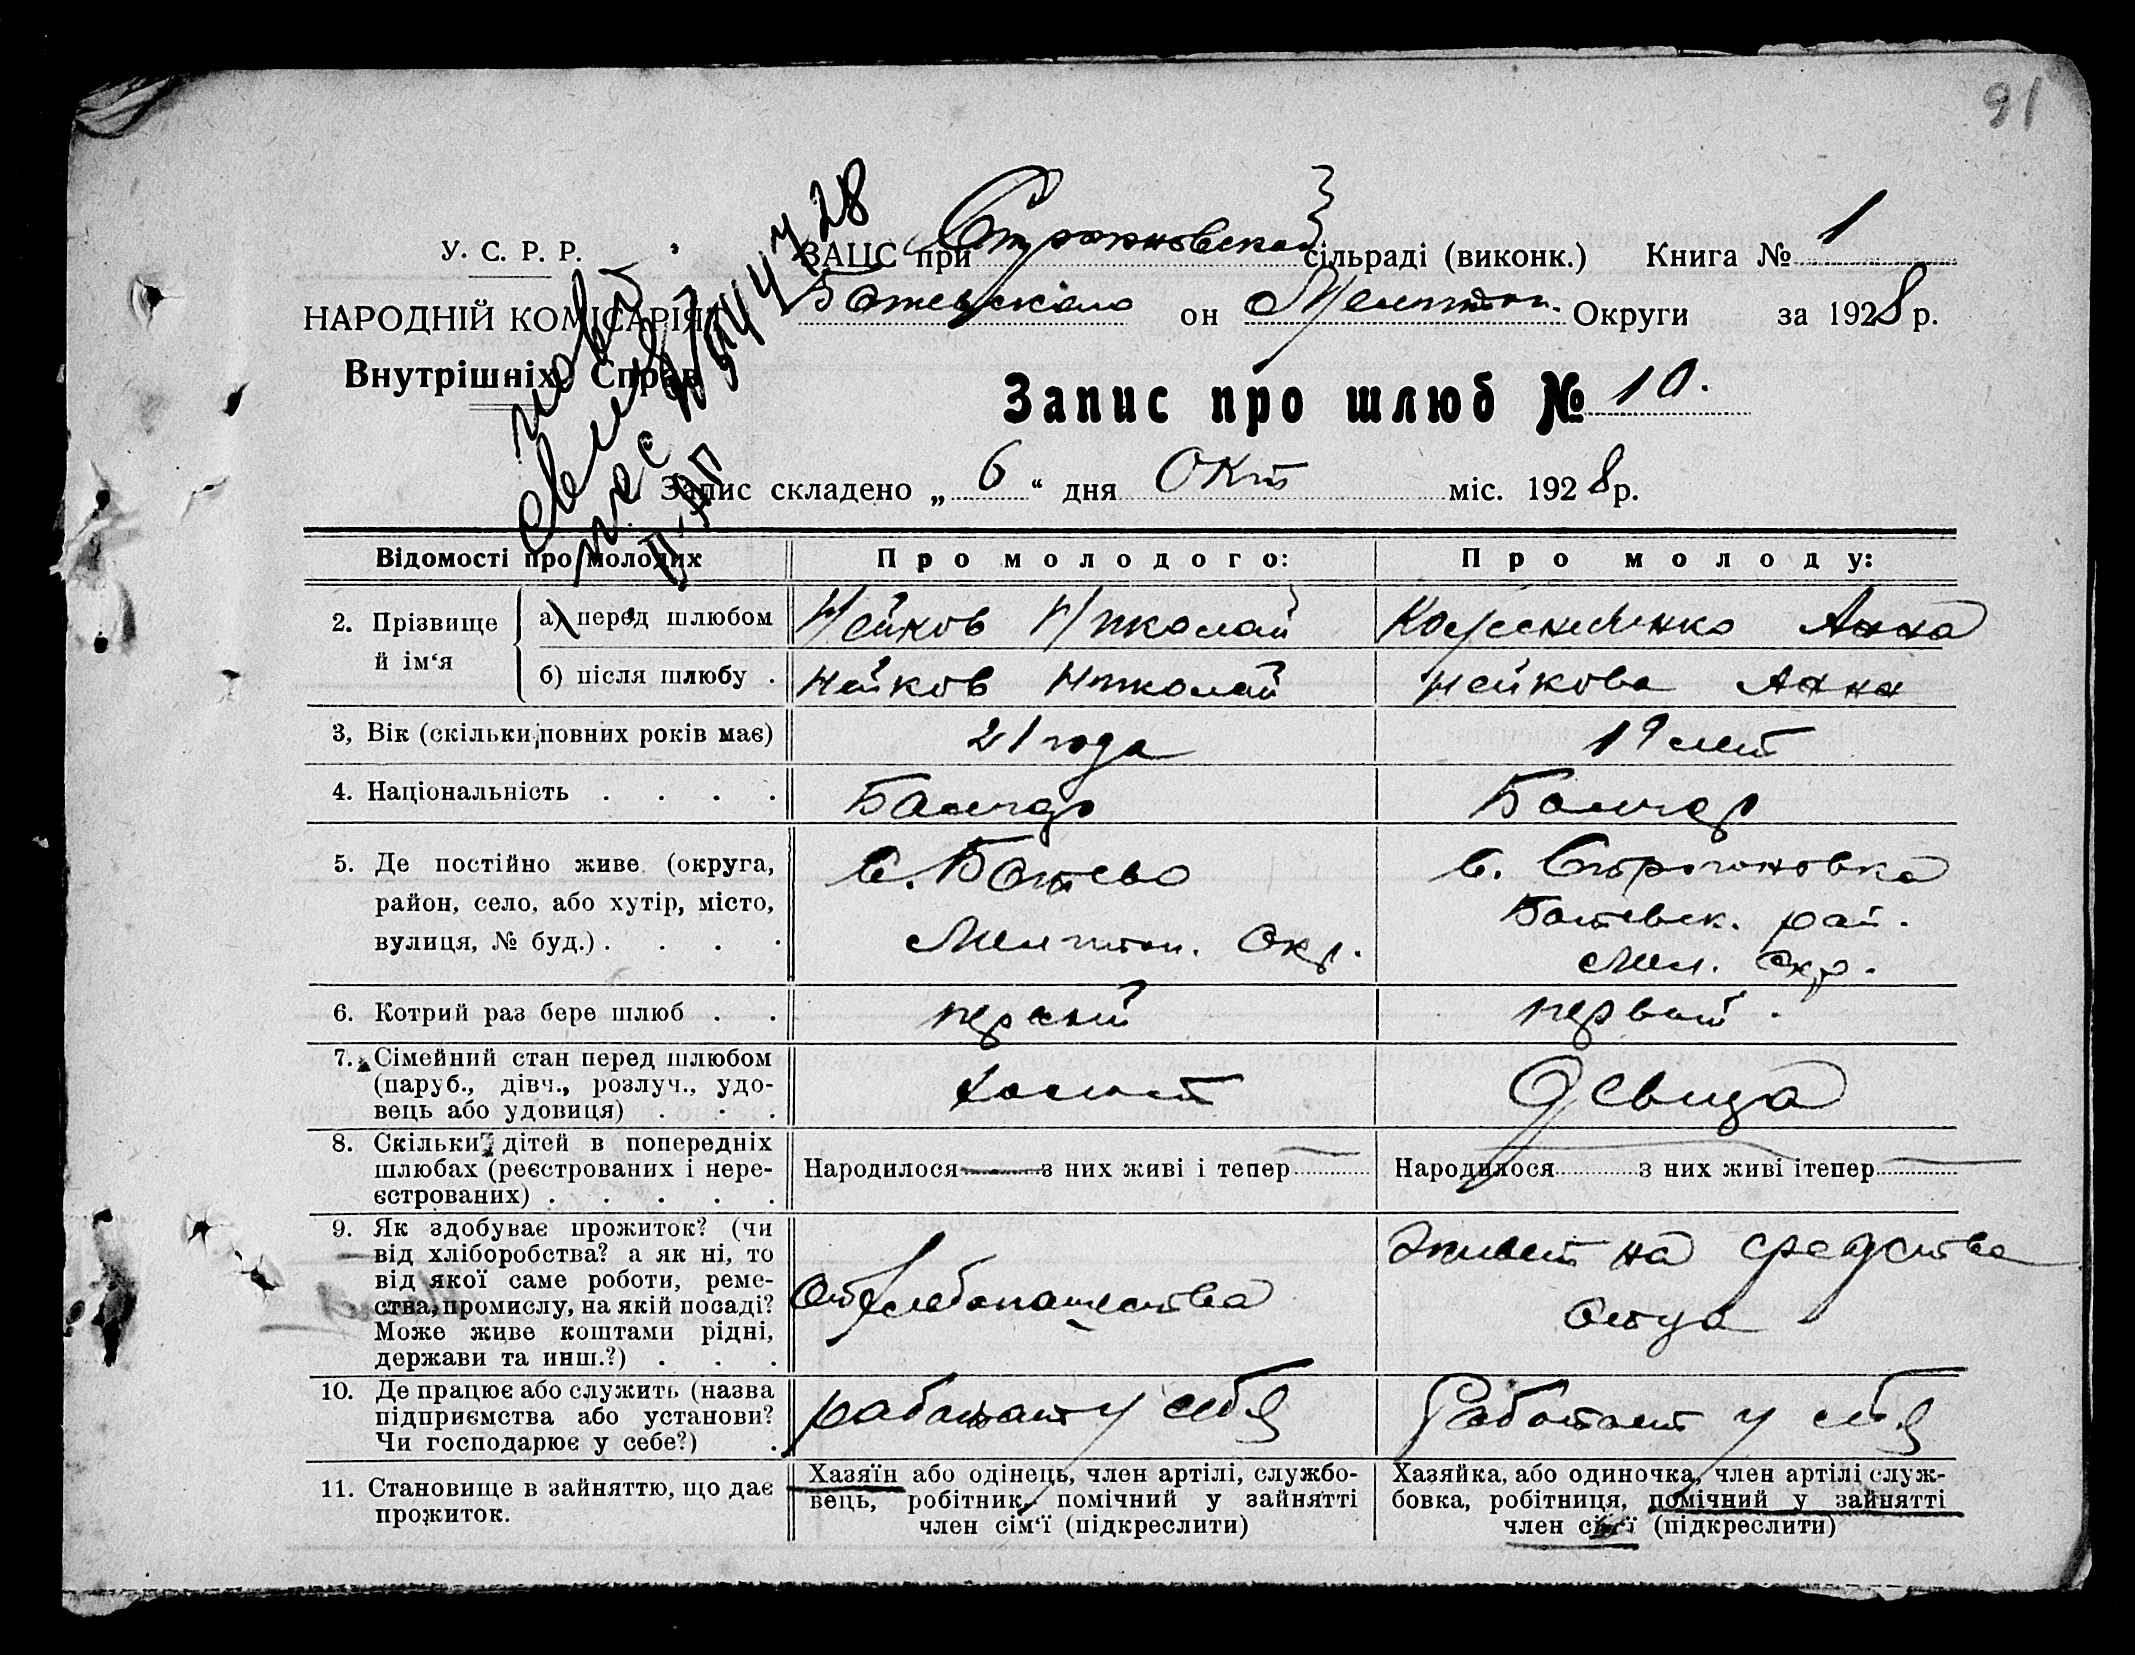 91
У. С. Р. Р.
НАРОДНІЙ КОМІСАРІЯТ
Внутрішніх Справ
ЗАЦС при Строгоновской сільраді (виконк.) Книга № 1
Ботевского он Мелитоп. Округи за 1928 р.
Запис про шлюб № 10.
Запис складено „ 6 “ дня Окт міс. 1928 р.
Відомості про молодих
Про молодого:
Про молоду:
2. Прізвище й ім‘я
а) перед шлюбом
Нейков Николай
Анна
б) після шлюбу .
Нейков Николай
Нейкова Анна
3, Вік (скільки повних років має)
21 года
19 лет
4. Національність . . . .
Болгар
Болгар
5. Де постійно живе (округа,
район, село, або хутір, місто,
вулиця, № буд.) . . . .
с. Ботево
Мелитоп. Окр.
с. Строгоновка
Ботевск. рай.
Мел. Окр.
6. Котрий раз бере шлюб . .
первый
первый .
7. Сімейний стан перед шлюбом
(паруб., дівч., розлуч., удо-
вець або удовиця) . . .
холост
Девица
8. Скільки дітей в попередніх
шлюбах (реєстрованих і нере-
єстрованих) . . . . .
Народилося — з них живі і тепер —
Народилося з них живі ітепер —
9. Як здобуває прожиток? (чи
від хліборобства? а як ні, то
від якої саме роботи, реме-
ства, промислу, на якій посаді?
Може живе коштами рідні,
держави та инш.?) . . .
От хлебопашества
Живет на средства
Отца
10. Де працює або служить (назва
підприємства або установи?
Чи господарює у себе?) .
работает у себя
Работает у себя
11. Становище в зайняттю, що дає
прожиток.
Хазяїн або одінець, член артілі, службо-
вець, робітник, помічний у зайнятті
член сім‘ї (підкреслити)
Хазяйка, або одиночка, член артілі служ-
бовка, робітниця, помічний у зайнятті
член сім‘ї (підкреслити)